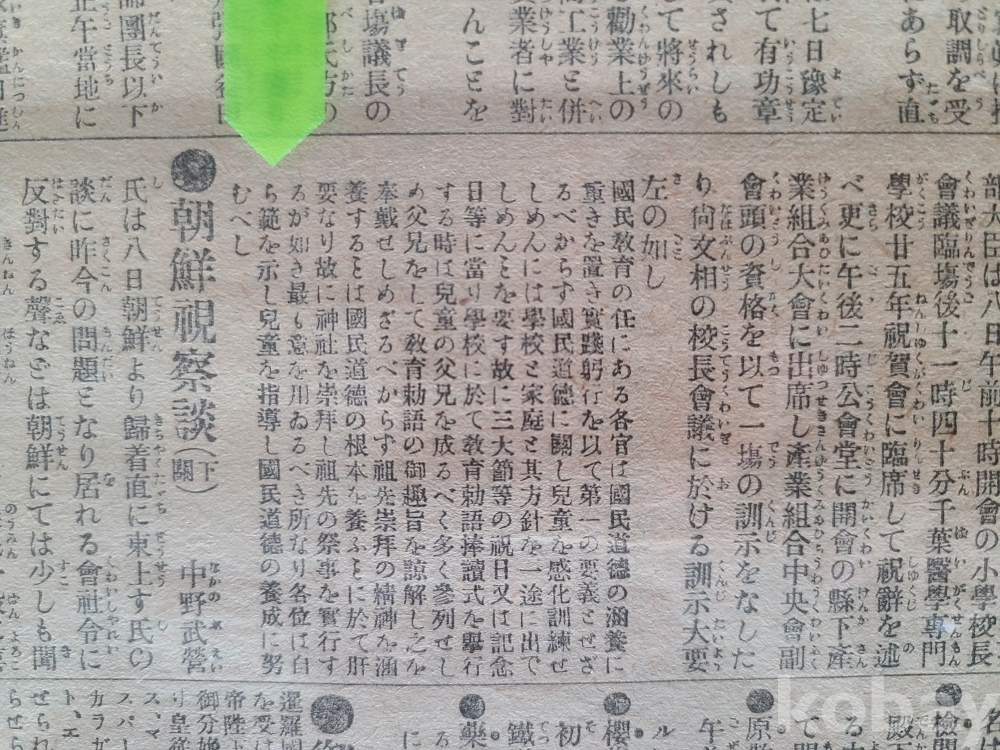 取調を受
にあらず直
は七日豫定
て有功章
されしも
て將來の
勸業上の
工業と併
業者に對
んことを
塲議長の
郎氏方の
席團長以下
正午當地に
部大臣は八日午前十時開會の小學校長
會議臨塲後十一時四十分千葉醫學專門
學校廿五年祝賀會に臨席して祝辭を述
べ更に午後二時公會堂に開會の縣下產
業組合大會に出席し產業組合中央會副
會頭の資格を以て一塲の訓示をなした
り尙文相の校長會議に於ける訓示大要
左の如し
國民敎育の任にある各官は國民道德の涵養に
重きを置き實踐躬行を以て第一の要義とせざ
るべからず國民道德に關し兒童を感化訓練せ
しめんには學校と家庭と其方針を一途に出で
しめんとを要す故に三大節等の祝日又は記念
日等に當り學校に於て敎育勅語捧讀式を擧行
する時は兒童の父兄を成るべく多く參列せし
め父兄をして敎育勅語の御趣旨を諒解し之を
奉戴せしめざるべからず祖先崇拜の精神を涵
養することは國民道德の根本を養ふとに於て肝
要なり故に神社を崇拜し祖先の祭事を實行す
るが如き最も意を用ゐるべき所なり各位は自
ら範を示し兒童を指導し國民道德の養成に努
むべし
●朝鮮視察談(下關) 中野武營
氏は八日朝鮮より歸着直に東上す氏の
談に昨今の問題となり居れる會社令に
反對する聲などは朝鮮にては少しも聞
檢
殿
る
て
●原
午
ル
●櫻
初
鐵
●樂
に
暹羅
を受は
帝陛下
御分
り皇
ス、マ
スパ
カラガ
ト、エ
せられ
らせら
kobay